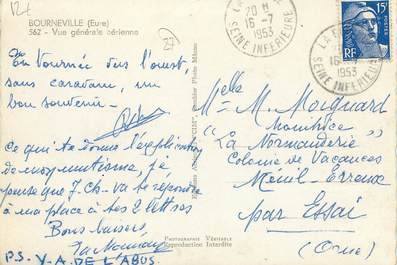 BOURNEVILLE (Eure)
562 - Vue générale aérienne
En tournée dans l'ouest
sans caravane, un
bon souvenir -
Ce qui te donne l'explication
de mon mutisme, je
pense que J. Ch. va te répondre
à ma place à tes 2 lettres
Bons baisers,
P.S. Y-A DE L'ABUS
PHOTOGRAPHIE VÉRITABLE
Reproduction Interdite
20 H
16-7
1953
SEINE INFERIEURE
15F
POSTES
RF
16-7
1953
SEINE INFERIEURE
Melle M. Moignard
Monitrice
"La Normanderie"
Colonie de Vacances
Ménil-Erreux
par Essai
(Orne)